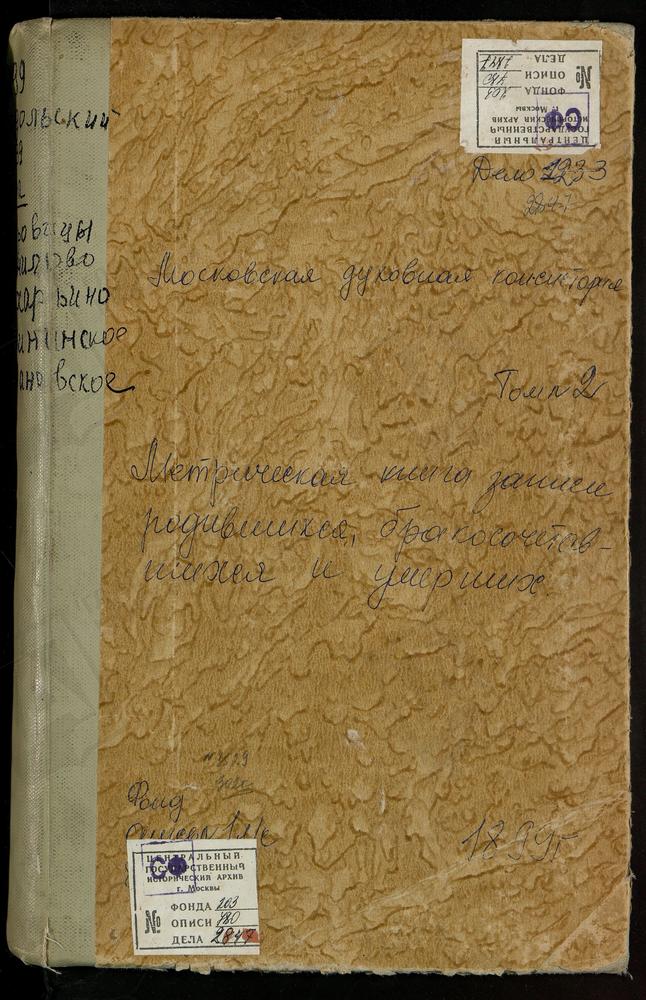 89
ольский
89
овицы
илово
харьино
ининское
ановское
ЦЕНТРАЛЬНЫЙ
ГОСУДАРСТВЕННЫЙ
ИСТОРИЧЕСКИЙ АРХИВ
г. Москвы
ФОНДА 203
№ ОПИСИ 780
ДЕЛА
СФ
Дело 1233
2847
Московская духовная консистория
Том № 2
Метрическая книга записи
родившихся, бракосочетав-
шихся и умерших.
Фонд
1899г
ЦЕНТРАЛЬНЫЙ
ГОСУДАРСТВЕННЫЙ
ИСТОРИЧЕСКИЙ АРХИВ
г. Москвы
СФ
ФОНДА 203
№ ОПИСИ 780
ДЕЛА 2847